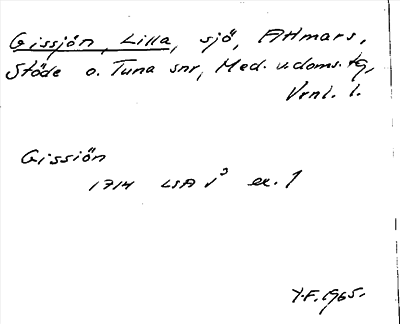 Gissjön, Lilla, sjö, Attmars,
Stöde o. Tuna snr, Med. v. doms. tg,
Vrnl. l.
Gissiön
1714 LSA V³ ex. 1
Y.F. 1965.